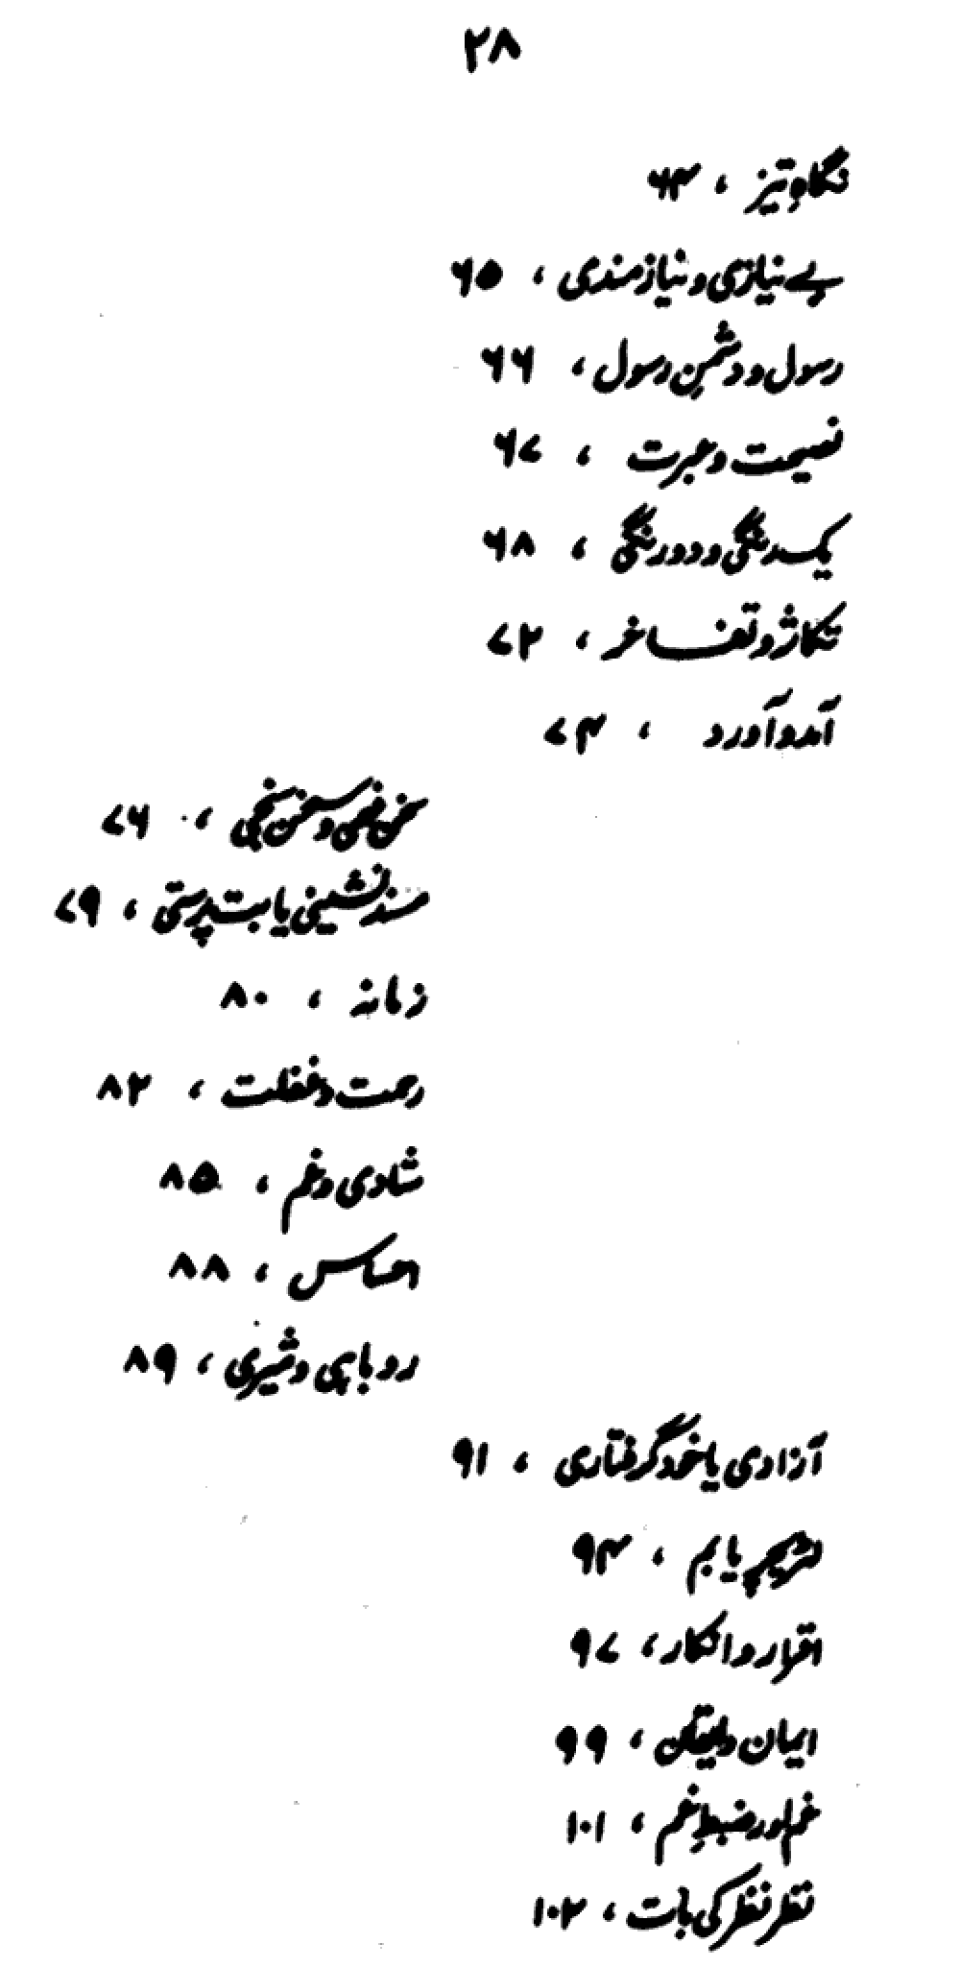 ۲۸
نگاہِ تیز ، ۶۳
بے نیازی و نیازمندی ، ۶۵
رسول و دشمنِ رسول ، ۶۶
نصیحت و عبرت ، ۶۷
یک رنگی و دو رنگی ، ۶۸
تکاثر و تفاخر ، ۷۲
آمد و آورد ، ۷۴
سخن فہمی و سخن سنجی ، ۷۶
مسند نشینی یا بت پرستی ، ۷۹
زمانہ ، ۸۰
رحمت و غفلت ، ۸۲
شادی و غم ، ۸۵
احساس ، ۸۸
روباہی و شیری ، ۸۹
آزادی یا خود گرفتاری ، ۹۱
لٹریچر یا بم ، ۹۴
اقرار و انکار ، ۹۷
ایمان و ایقان ، ۹۹
غم اور ضبطِ غم ، ۱۰۱
نظر نظر کی بات ، ۱۰۲